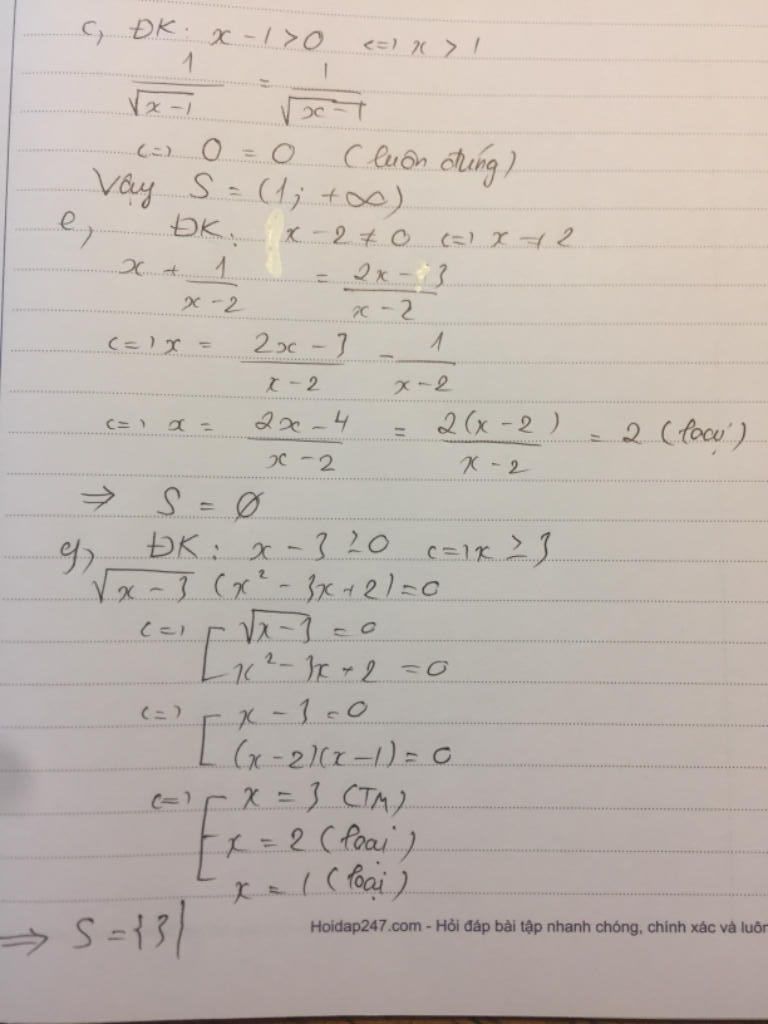 c, ĐK: x - 1 > 0 <=> x > 1
1/√(x-1) = 1/√(x-1)
<=> 0 = 0 (luôn đúng)
Vậy S = (1; +∞)
e, ĐK: x - 2 ≠ 0 <=> x ≠ 2
x + 1/(x-2) = (2x - 3)/(x-2)
<=> x = (2x - 3)/(x-2) - 1/(x-2)
<=> x = (2x - 4)/(x-2) = 2(x-2)/(x-2) = 2 (loại)
=> S = ∅
g, ĐK: x - 3 ≥ 0 <=> x ≥ 3
√(x-3) (x² - 3x + 2) = 0
<=> [ √(x-3) = 0
x² - 3x + 2 = 0
<=> [ x - 3 = 0
(x-2)(x-1) = 0
<=> [ x = 3 (TM)
x = 2 (loại)
x = 1 (loại)
=> S = {3}
Hoidap247.com - Hỏi đáp bài tập nhanh chóng, chính xác và luôn